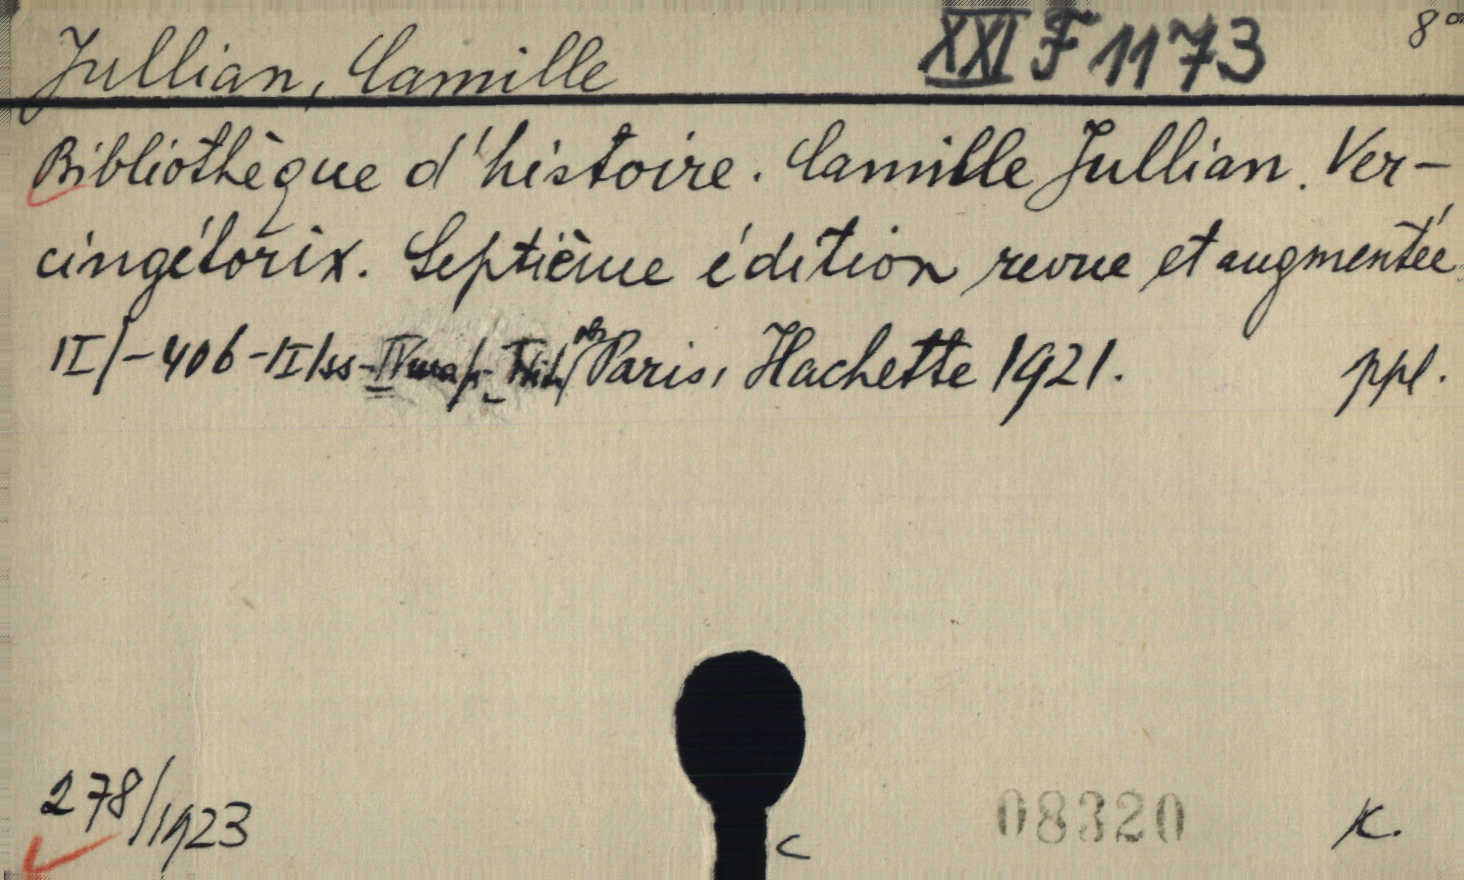 Jullian, Camille XXI F 1173 8°
Bibliothèque d'histoire. Camille Jullian. Ver-
cingétorix. Septième édition revue et augmentée
/II/-406-/I/ss- Paris, Hachette 1921. ppl.
278/1923
08320 K.
C